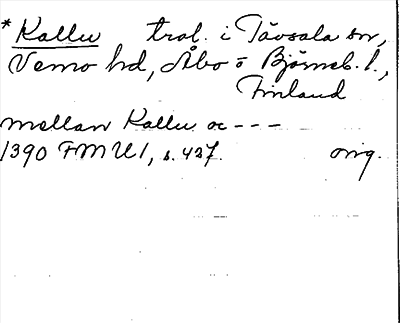 * Kallu trol. i Tövsala sn,
Vemo hd, Åbo o Björneb. l.,
Finland
mellan Kallu oc ---
1390 FMU 1, s. 427. orig.